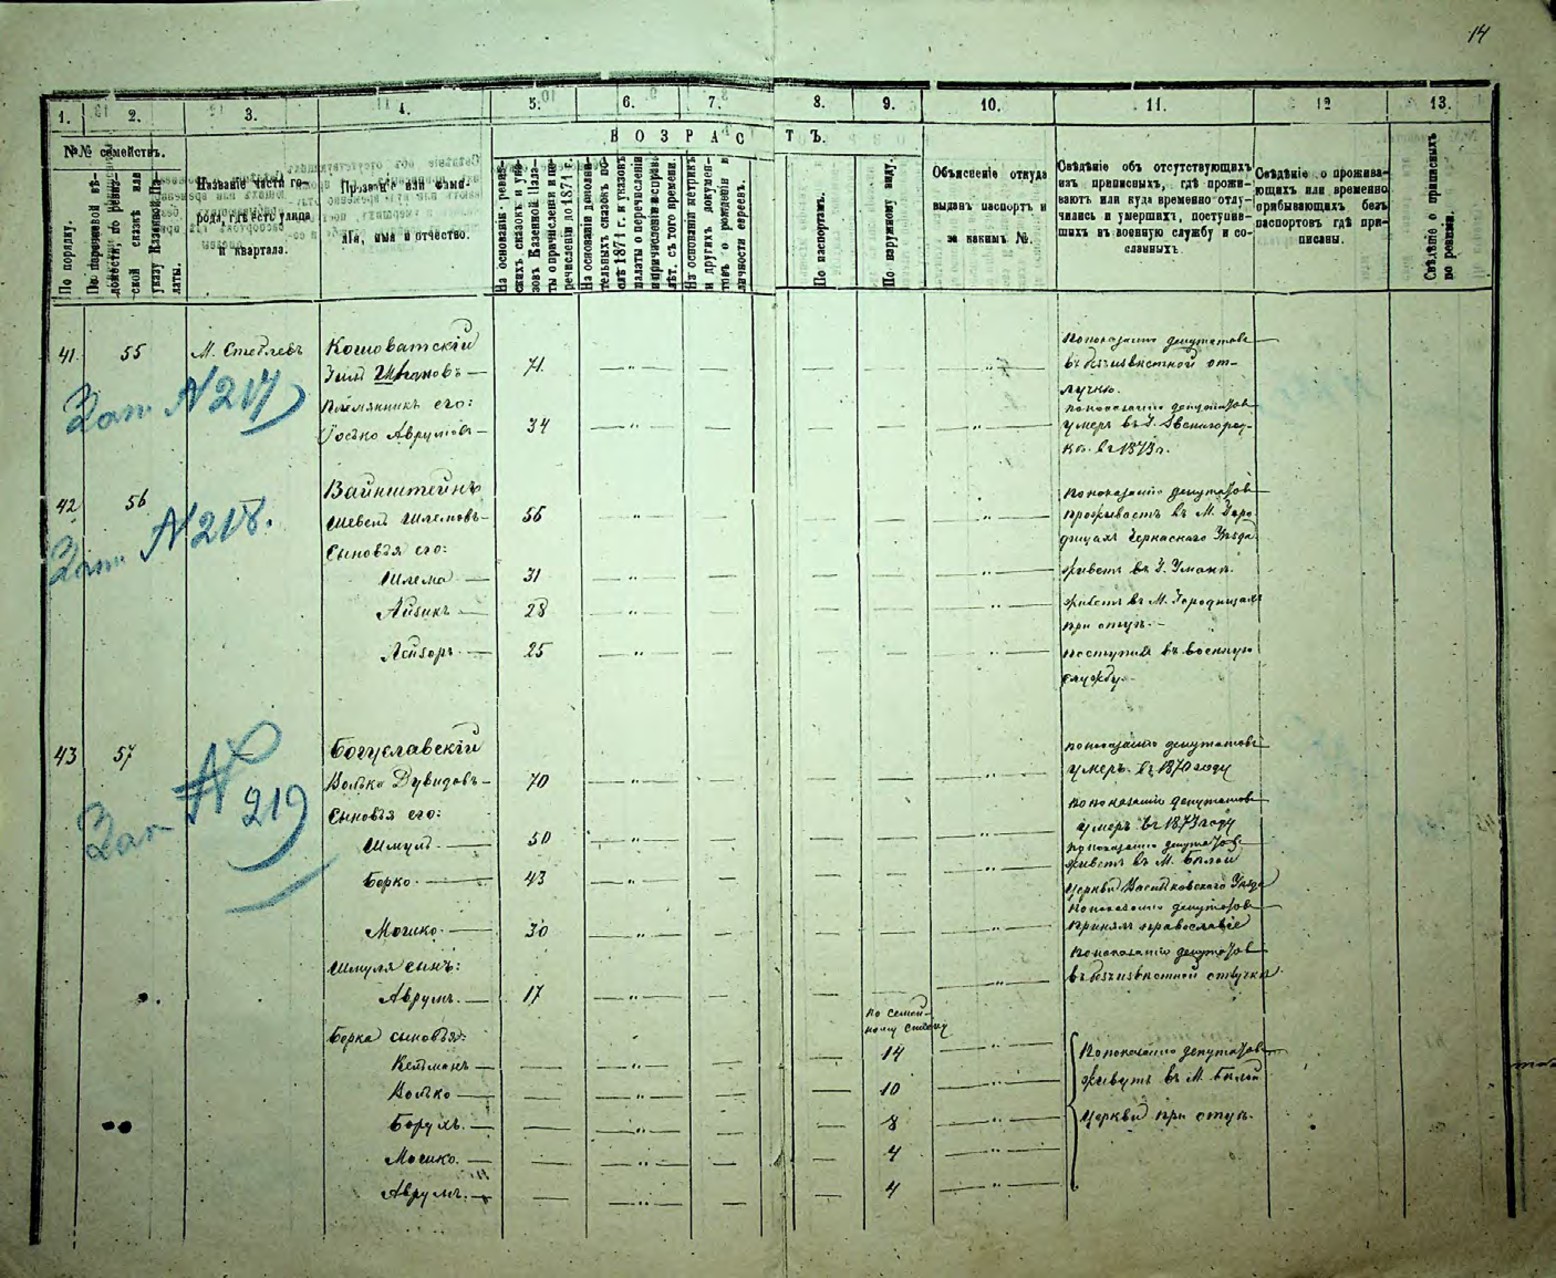 14
1. 2. 3. 4. 5. 6. 7. 8. 9. 10. 11. 12 13.
№№ семействъ.
ВОЗРАСТЪ.
По порядку.
указу Казенной Па-
латы.
Названіе части го-
рода, гдѣ есть улица
и квартала.
Прозваніе или фами-
лія, имя и отчество.
На основаніи ревиз-
скихъ сказокъ и ука-
зовъ Казенной Пала-
ты о причисленіи и пе-
речисленіи до 1871 г.
На основаніи дополни-
тельныхъ сказокъ по-
слѣ 1871 г. и указовъ
палаты о перечисленіи
и причисленіи и справ.
лѣт. съ того времени.
На основаніи метрикъ
и другихъ докумен-
товъ о рожденіи и
личности евреевъ.
По паспортамъ.
По наружному виду.
Объясненіе откуда
выданъ паспортъ и
за какимъ №.
Свѣдѣніе объ отсутствующихъ
изъ приписныхъ, гдѣ прожи-
ваютъ или куда временно отлу-
чились и умершихъ, поступив-
шихъ въ военную службу и со-
сланныхъ.
Свѣдѣніе о прожива-
ющихъ или временно
прибывающихъ безъ
паспортовъ гдѣ при-
писаны.
Свѣдѣніе о приписныхъ
по ревизіи.
41. 55 М. Стеблевъ Кошоватскій
71.
Зап. N 217
по показанію депутатовъ
въ безъизвѣстной от-
лучкѣ.
Племянникъ его:
Іосько Аврумовъ — 34
по показанію депутатовъ
умеръ въ г. Звенигород-
кѣ въ 1873 г.
42 56 Вайнштейнъ
Зап. N 218.
Шлемовъ — 56
по показанію депутатовъ
проживаетъ въ М. Горо-
дищахъ Черкаскаго Уѣзда
Сыновья его:
Шлема — 31 живетъ въ г. Умани.
Айзикъ — 28 живетъ въ М. Городищахъ
при отцѣ. —
Лейзоръ — 25 поступилъ въ военную
службу.
43 57 Богуславскій
Зап N 219
по показанію депутатовъ
Волько Дувидовъ — 70 умеръ въ 1870 году
Сыновья его:
по показанію депутатовъ
умеръ въ 1873 году
Шмуль — 50
по показанію депутатовъ
живетъ въ М. Бѣлой
Берко — 43 Церкви Васильковскаго Уѣзда
по показанію депутатовъ
Мошко — 30 принялъ православіе
Шмуля сынъ:
по показанію депутатовъ
въ безъизвѣстной отлучкѣ.
Аврумъ — 17
по семей-
ному списку
Берка сыновья:
Кельманъ — 14 По показанію депутатовъ
Волько — 10 живутъ въ М. Бѣлой
Борухъ — 8 Церкви при отцѣ.
Мошко — 4
Аврумъ — 4